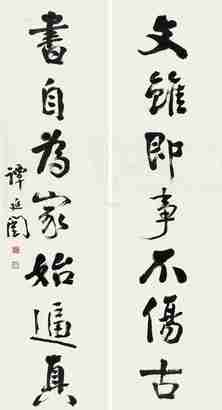 文雖即事不傷古
書自為家始逼真
譚延闓